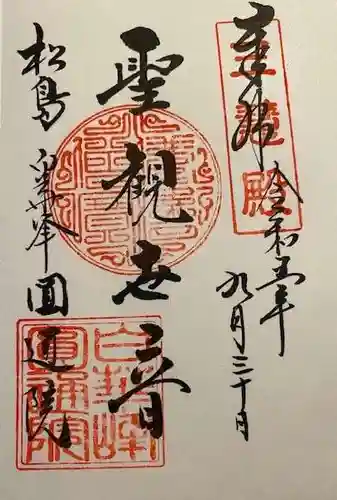 奉拝
三慧殿
令和五年
九月三十日
聖観世音
松島 白華峰 圓通院
白華峰
圓通院